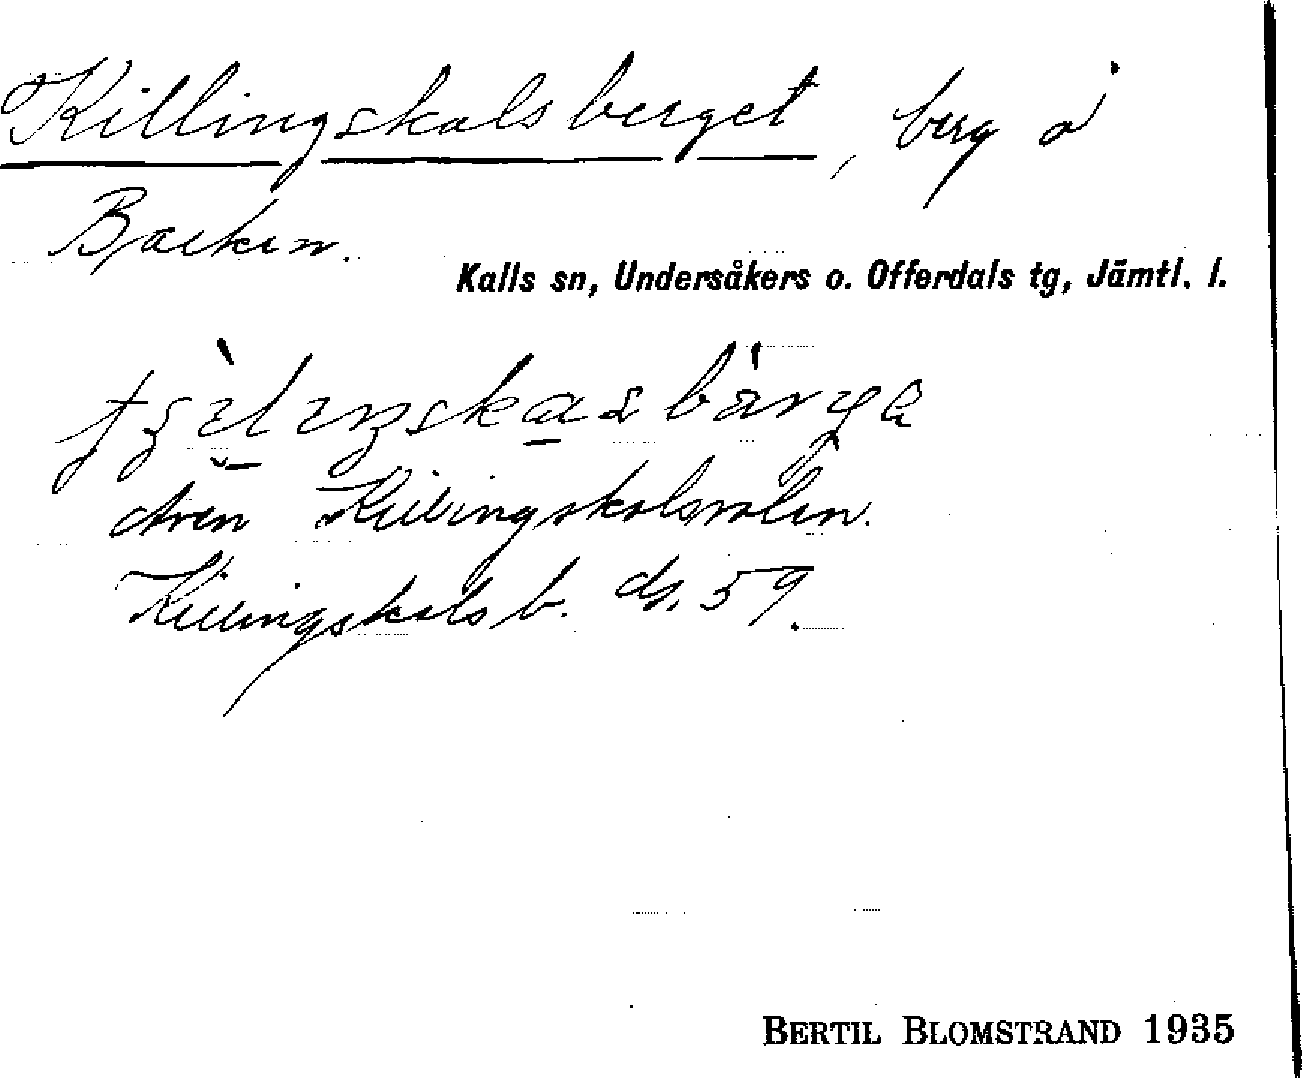 Killingskalsberget, berg å
Backen.
Kalls sn, Undersåkers o. Offerdals tg, Jämtl. l.
även Killingskalsvalen.
Killingskals b. ds. 59.
BERTIL BLOMSTRAND 1935